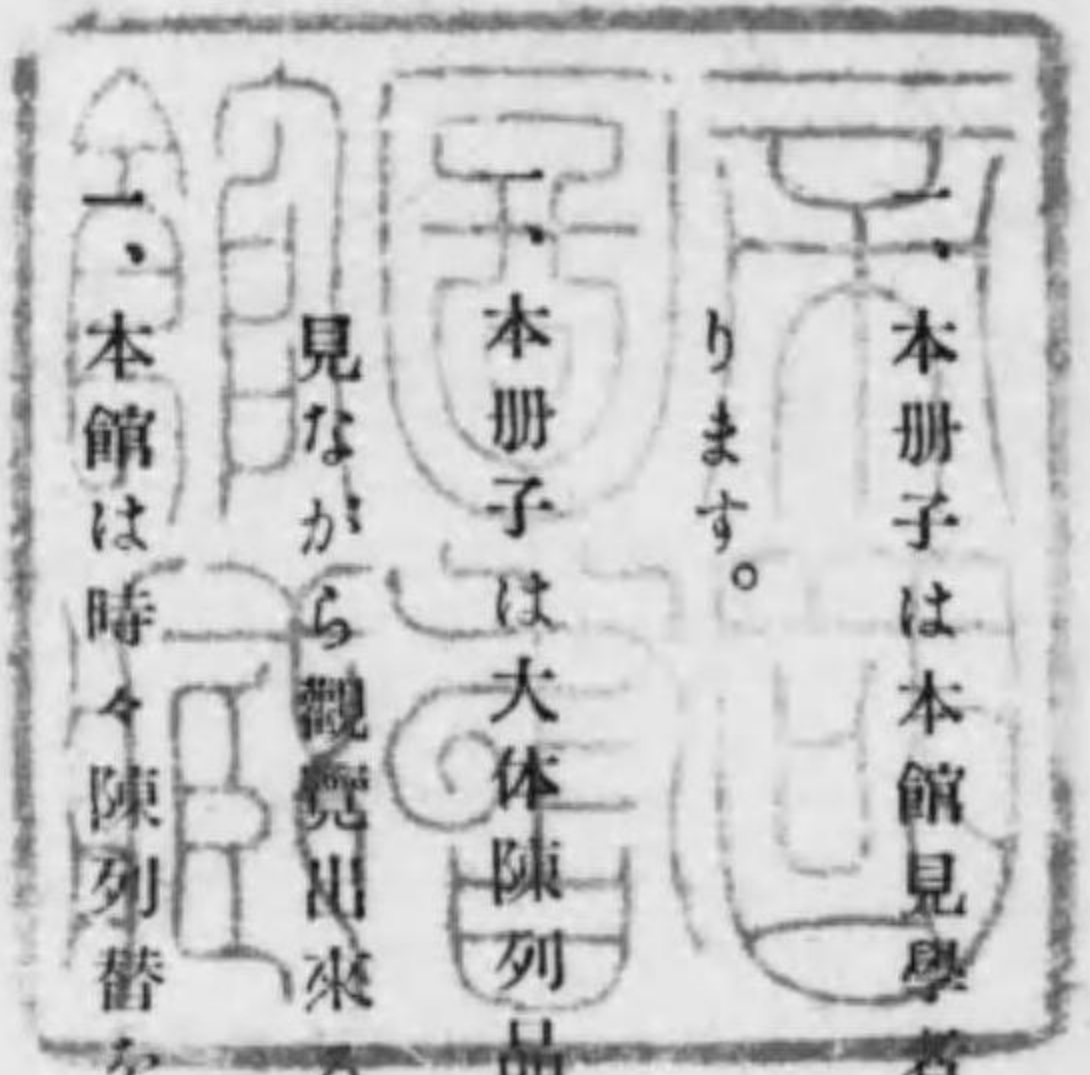 一、本册子は本館見學者
ります。
一、本册子は大体陳列品
見ながら觀覽出來る
一、本館は時々陳列替を